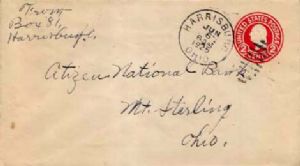 From
Box 81,
Harrisburgh
HARRISBURG
JUN
OHIO
UNITED STATES POSTAGE
Citizen National Bank
Mt. Sterling
Ohio.